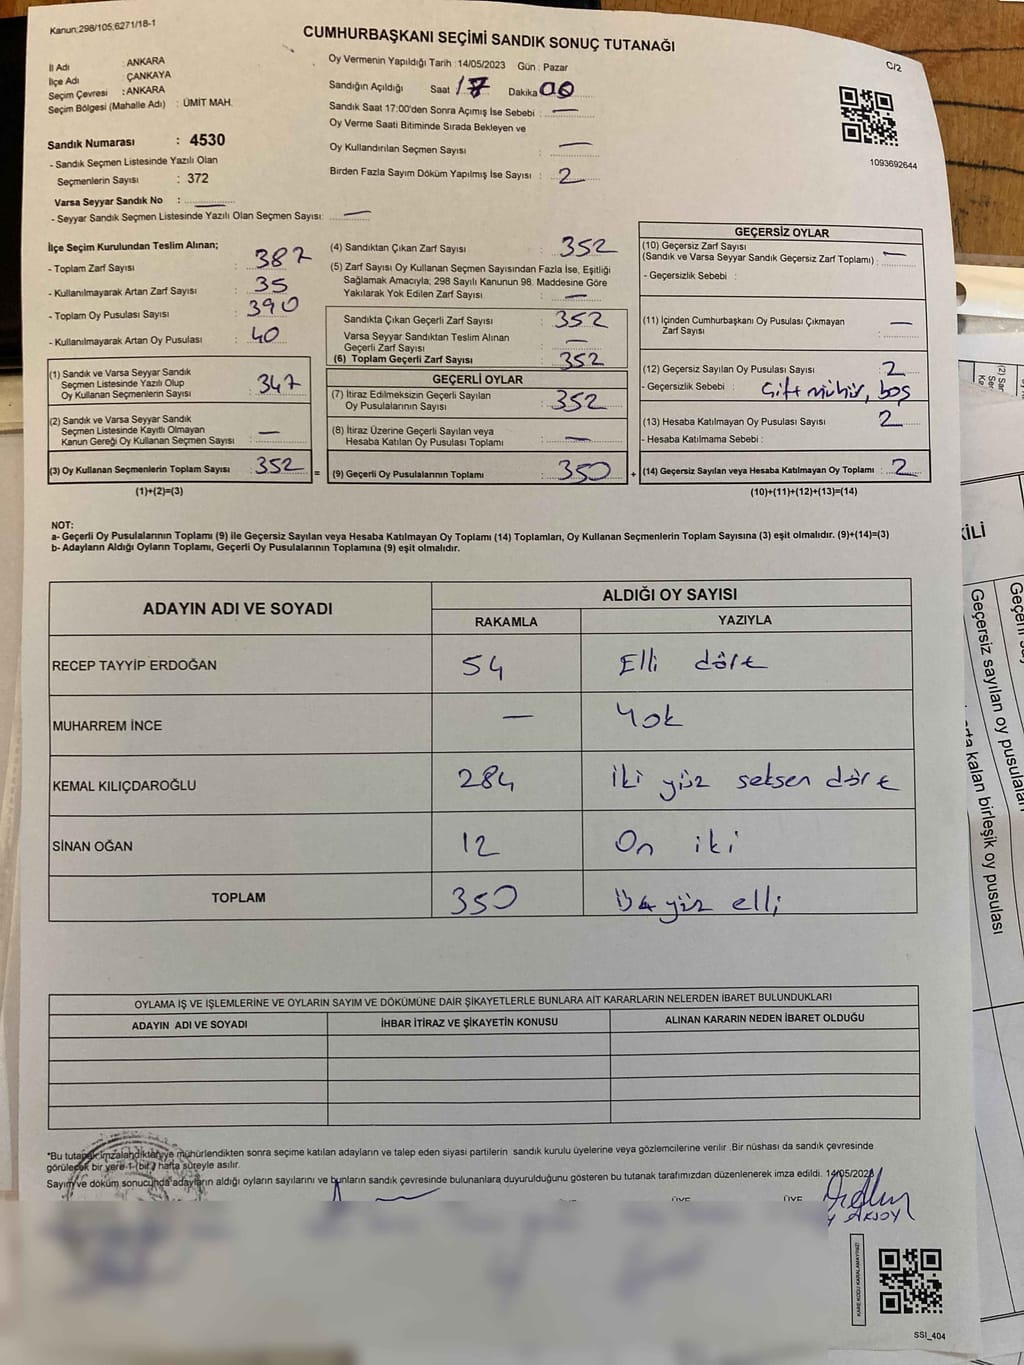 Kanun;298/105,6271/18-1
CUMHURBAŞKANI SEÇİMİ SANDIK SONUÇ TUTANAĞI
C/2
İl Adı : ANKARA
İlçe Adı : ÇANKAYA
Seçim Çevresi : ANKARA
Seçim Bölgesi (Mahalle Adı) : ÜMİT MAH.
Oy Vermenin Yapıldığı Tarih :14/05/2023 Gün : Pazar
Sandığın Açıldığı Saat 17 Dakika 00
Sandık Saat 17:00'den Sonra Açımış İse Sebebi : —
Oy Verme Saati Bitiminde Sırada Bekleyen ve
Oy Kullandırılan Seçmen Sayısı : —
Birden Fazla Sayım Döküm Yapılmış İse Sayısı : 2
1093692644
Sandık Numarası : 4530
- Sandık Seçmen Listesinde Yazılı Olan
Seçmenlerin Sayısı : 372
Varsa Seyyar Sandık No : —
- Seyyar Sandık Seçmen Listesinde Yazılı Olan Seçmen Sayısı: —
İlçe Seçim Kurulundan Teslim Alınan;
- Toplam Zarf Sayısı : 387
- Kullanılmayarak Artan Zarf Sayısı : 35
- Toplam Oy Pusulası Sayısı : 390
- Kullanılmayarak Artan Oy Pusulası : 40
(1) Sandık ve Varsa Seyyar Sandık
Seçmen Listesinde Yazılı Olup
Oy Kullanan Seçmenlerin Sayısı : 347
(2) Sandık ve Varsa Seyyar Sandık
Seçmen Listesinde Kayıtlı Olmayan
Kanun Gereği Oy Kullanan Seçmen Sayısı : —
(3) Oy Kullanan Seçmenlerin Toplam Sayısı : 352 =
(1)+(2)=(3)
(4) Sandıktan Çıkan Zarf Sayısı : 352
(5) Zarf Sayısı Oy Kullanan Seçmen Sayısından Fazla İse, Eşitliği
Sağlamak Amacıyla; 298 Sayılı Kanunun 98. Maddesine Göre
Yakılarak Yok Edilen Zarf Sayısı : —
Sandıkta Çıkan Geçerli Zarf Sayısı : 352
Varsa Seyyar Sandıktan Teslim Alınan
Geçerli Zarf Sayısı : —
(6) Toplam Geçerli Zarf Sayısı : 352
GEÇERLİ OYLAR
(7) İtiraz Edilmeksizin Geçerli Sayılan
Oy Pusulalarının Sayısı : 352
(8) İtiraz Üzerine Geçerli Sayılan veya
Hesaba Katılan Oy Pusulası Toplamı : —
(9) Geçerli Oy Pusulalarının Toplamı : 350 +
GEÇERSİZ OYLAR
(10) Geçersiz Zarf Sayısı
(Sandık ve Varsa Seyyar Sandık Geçersiz Zarf Toplamı) : —
- Geçersizlik Sebebi :
(11) İçinden Cumhurbaşkanı Oy Pusulası Çıkmayan
Zarf Sayısı : —
(12) Geçersiz Sayılan Oy Pusulası Sayısı : 2
- Geçersizlik Sebebi : Çift mühür, boş
(13) Hesaba Katılmayan Oy Pusulası Sayısı : 2
- Hesaba Katılmama Sebebi :
(14) Geçersiz Sayılan veya Hesaba Katılmayan Oy Toplamı : 2
(10)+(11)+(12)+(13)=(14)
NOT:
a- Geçerli Oy Pusulalarının Toplamı (9) ile Geçersiz Sayılan veya Hesaba Katılmayan Oy Toplamı (14) Toplamları, Oy Kullanan Seçmenlerin Toplam Sayısına (3) eşit olmalıdır. (9)+(14)=(3)
b- Adayların Aldığı Oyların Toplamı, Geçerli Oy Pusulalarının Toplamına (9) eşit olmalıdır.
ADAYIN ADI VE SOYADI ALDIĞI OY SAYISI
RAKAMLA YAZIYLA
RECEP TAYYİP ERDOĞAN 54 Elli dört
MUHARREM İNCE — Yok
KEMAL KILIÇDAROĞLU 284 İki yüz seksen dört
SİNAN OĞAN 12 On iki
TOPLAM 350 yüz elli
OYLAMA İŞ VE İŞLEMLERİNE VE OYLARIN SAYIM VE DÖKÜMÜNE DAİR ŞİKAYETLERLE BUNLARA AİT KARARLARIN NELERDEN İBARET BULUNDUKLARI
ADAYIN ADI VE SOYADI İHBAR İTİRAZ VE ŞİKAYETİN KONUSU ALINAN KARARIN NEDEN İBARET OLDUĞU
*Bu tutanak imzalandıktan ve mühürlendikten sonra seçime katılan adayların ve talep eden siyasi partilerin sandık kurulu üyelerine veya gözlemcilerine verilir. Bir nüshası da sandık çevresinde
görülecek bir yere 1 (bir) hafta süreyle asılır.
Sayım ve döküm sonucunda adayların aldığı oyların sayılarını ve bunların sandık çevresinde bulunanlara duyurulduğunu gösteren bu tutanak tarafımızdan düzenlenerek imza edildi. 14/05/2023
ÜYE ÜYE
AKSOY
KARE KODU KARALAMAYINIZ!
SSI_404
Geçersiz sayılan oy pusulaları
kalan birleşik oy pusulası